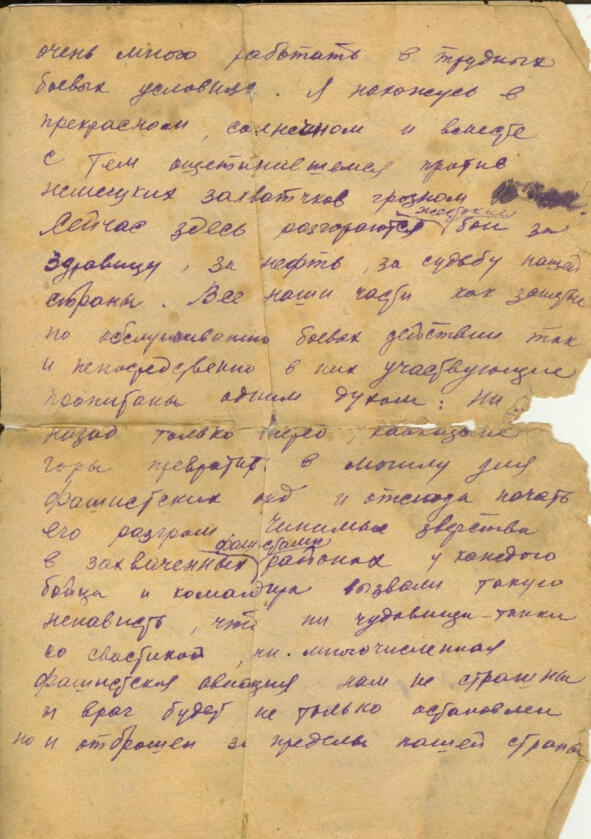 очень много работать в трудных
боевых условиях. Я нахожусь в
прекрасном, солнечном и вместе
с тем ощетинившемся против
немецких захватчков грозном
Сейчас здесь разгораются жестокие бои за
здравницу, за нефть, за судьбу нашей
страны. Все наши части как занятые
по обслуживанию боевых действий так
и непосредственно в них участвующие
пропитаны одним духом: Ни
назад только перед, кавказские
горы превратить в могилу для
фашистских орд и отсюда начать
его разгром. Чинимые зверства
в захваченных фашистами районах у каждого
бойца и командира вызвали такую
ненависть, что ни чудовища-танки
со свастикой, ни многочисленная
фашистская авиация нам не страшны
и враг будет не только остановлен
но и отброшен за пределы нашей страны